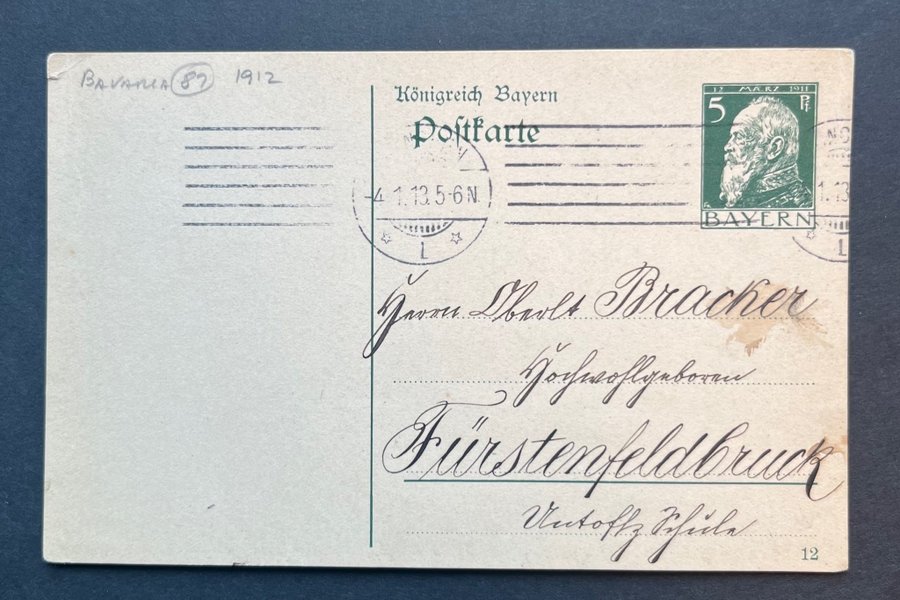 BAVARIA 89 1912
Königreich Bayern
Postkarte
12 MÄRZ 1911
5 Pf
BAYERN
-4.1.13.5-6N.
1
1.13
1
Herrn Oberlt Bracker
Hochwohlgeboren
Fürstenfeldbruck
Untoffz Schule
12